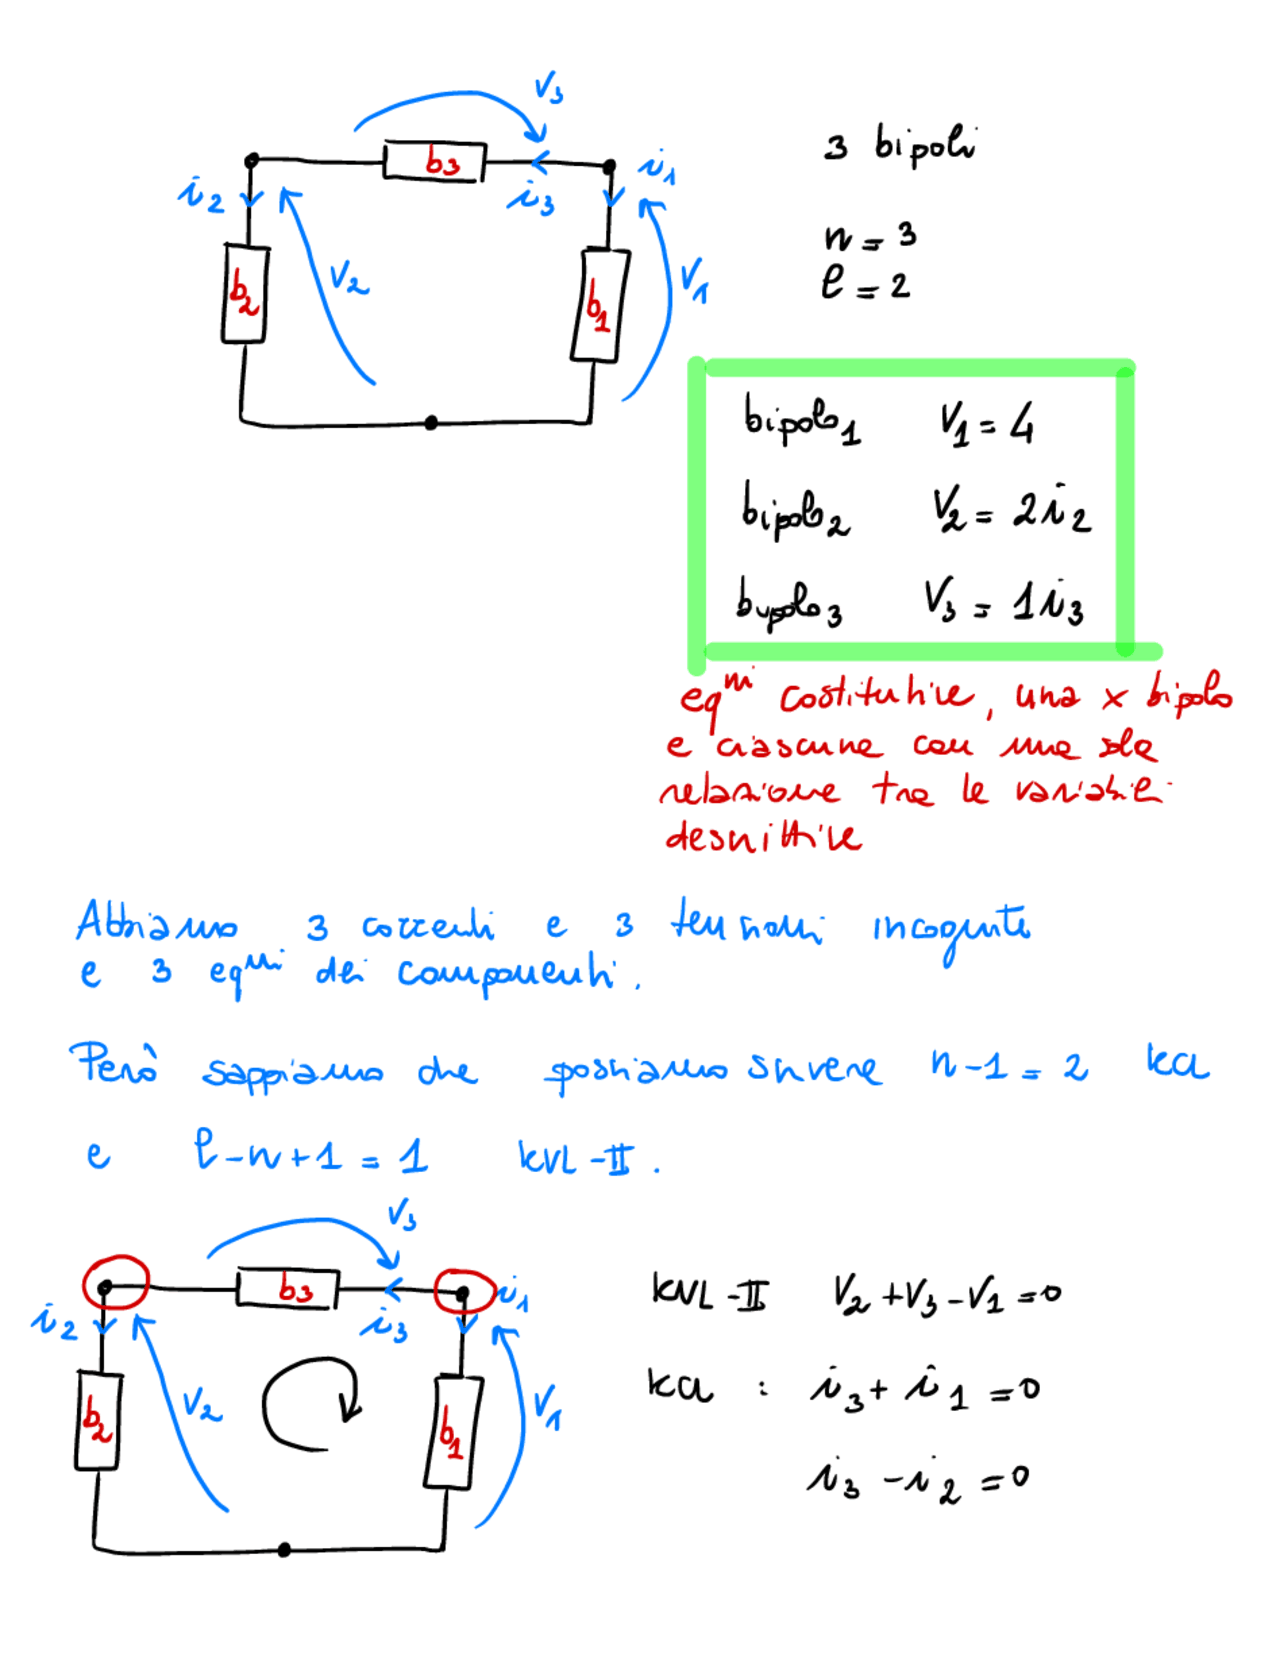 V3
b3
i3
i1
i2
V2
V1
b2
b1
3 bipoli
n = 3
l = 2
bipolo1 V1 = 4
bipolo2 V2 = 2i2
bypolo3 V3 = 1i3
eqni costitutive, una x bipolo
e ciascuna con una sola
relazione tra le variabili
descrittive
Abbiamo 3 correnti e 3 tensioni incognite
e 3 eqni dei componenti.
Però sappiamo che possiamo scrivere n-1 = 2 KCL
e l-n+1 = 1 KVL-II.
V3
b3
i3
i1
i2
V2
V1
b2
b1
KVL-II V2 + V3 - V1 = 0
KCL : i3 + i1 = 0
i3 - i2 = 0